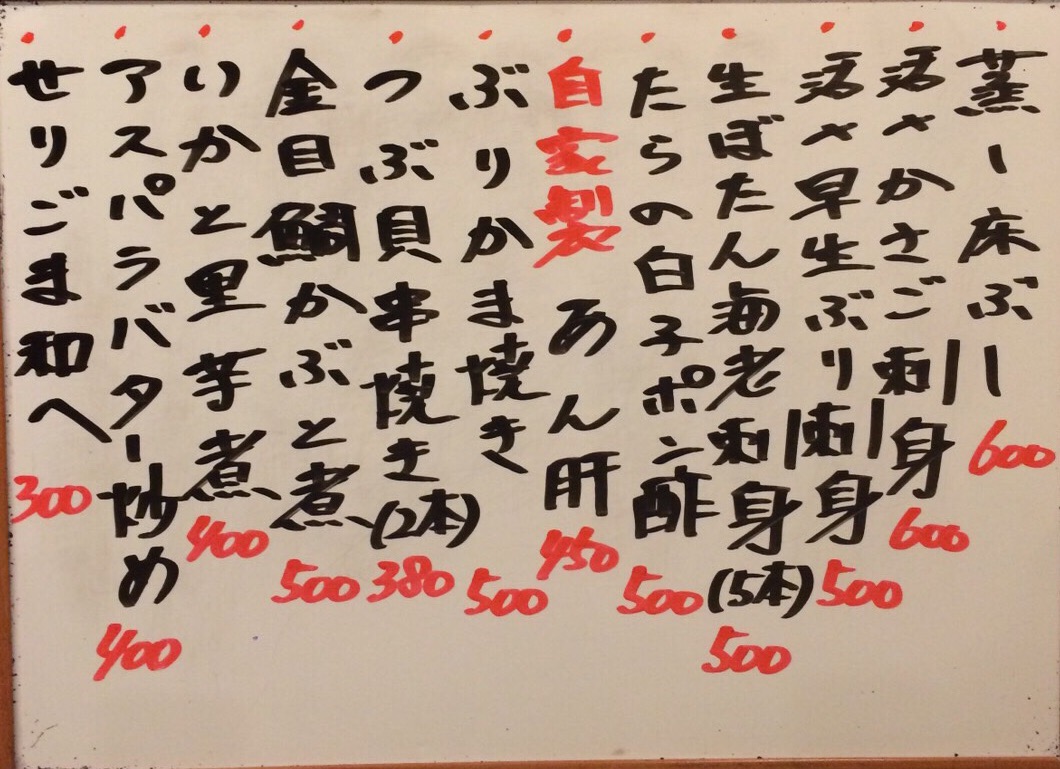 蒸し床ぶし 600
活〆かさご刺身 600
活〆早生ぶり刺身 500
生ぼたん海老刺身(5本) 500
たらの白子ポン酢 500
自家製 あん肝 450
ぶりかま焼き 500
つぶ貝串焼き(2本) 380
金目鯛かぶと煮 500
いかと里芋煮 400
アスパラバター炒め 400
せりごま和へ 300